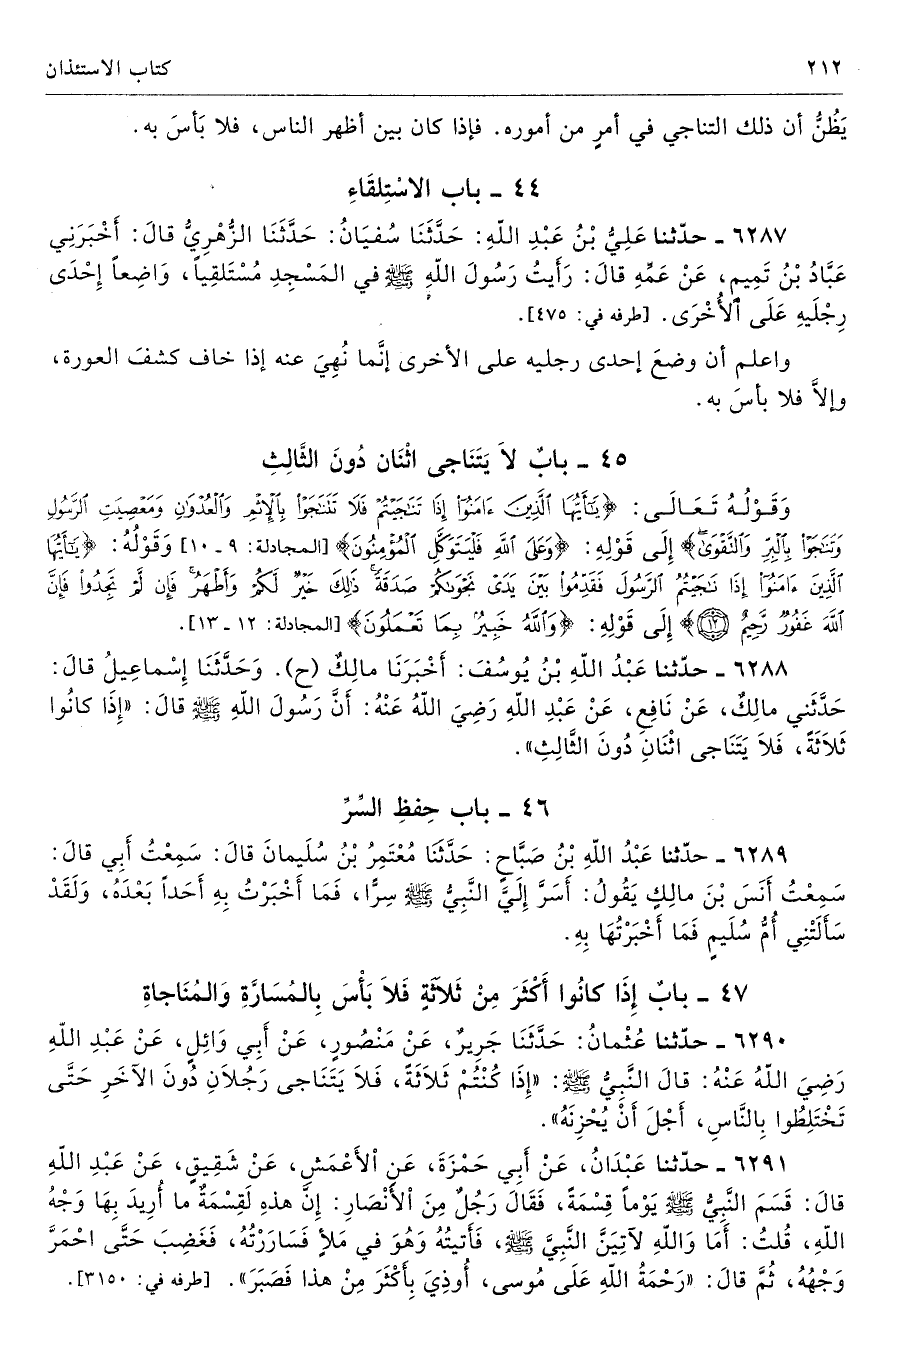 ٢١٢ كتاب الاستئذان
يَظُنُّ أن ذلك التناجي في أمرٍ من أموره. فإذا كان بين أظهر الناس، فلا بَأسَ به.
٤٤ ـ باب الاسْتِلقَاءِ
٦٢٨٧ ـ حدّثنا عَلِيُّ بْنُ عَبْدِ اللّهِ: حَدَّثَنَا سُفيَانُ: حَدَّثَنَا الزُّهْرِيُّ قالَ: أَخْبَرَنِي
عَبَّادُ بْنُ تَمِيمٍ، عَنْ عَمِّهِ قالَ: رَأَيتُ رَسُولَ اللّهِ ﷺ في المَسْجِدِ مُسْتَلقِياً، وَاضِعاً إِحْدَى
رِجْلَيهِ عَلَى الأُخْرَى. [طرفه في: ٤٧٥].
واعلم أن وضعَ إحدى رجليه على الأخرى إنَّما نُهِيَ عنه إذا خاف كشفَ العورة،
وإلاَّ فلا بأسَ به.
٤٥ ـ بابٌ لاَ يَتَنَاجى اثْنَان دُونَ الثَّالِثِ
وَقَوْلُهُ تَعَالَى: ﴿يَٰٓأَيُّهَا ٱلَّذِينَ ءَامَنُوٓا۟ إِذَا تَنَٰجَيْتُمْ فَلَا تَتَنَٰجَوْا۟ بِٱلْإِثْمِ وَٱلْعُدْوَٰنِ وَمَعْصِيَتِ ٱلرَّسُولِ
وَتَنَٰجَوْا۟ بِٱلْبِرِّ وَٱلتَّقْوَىٰ﴾ إِلَى قَوْلِهِ: ﴿وَعَلَى ٱللَّهِ فَلْيَتَوَكَّلِ ٱلْمُؤْمِنُونَ﴾ [المجادلة: ٩ ـ ١٠] وَقَوْلُهُ: ﴿يَٰٓأَيُّهَا
ٱلَّذِينَ ءَامَنُوٓا۟ إِذَا نَٰجَيْتُمُ ٱلرَّسُولَ فَقَدِّمُوا۟ بَيْنَ يَدَىْ نَجْوَىٰكُمْ صَدَقَةً ۚ ذَٰلِكَ خَيْرٌ لَّكُمْ وَأَطْهَرُ ۚ فَإِن لَّمْ تَجِدُوا۟ فَإِنَّ
ٱللَّهَ غَفُورٌ رَّحِيمٌ ١٢﴾ إِلَى قَوْلِهِ: ﴿وَٱللَّهُ خَبِيرٌۢ بِمَا تَعْمَلُونَ﴾ [المجادلة: ١٢ ـ ١٣].
٦٢٨٨ ـ حدّثنا عَبْدُ اللّهِ بْنُ يُوسُفَ: أَخْبَرَنَا مالِكٌ (ح). وَحَدَّثَنَا إِسْماعِيلُ قالَ:
حَدَّثَنِي مالِكٌ، عَنْ نَافِعٍ، عَنْ عَبْدِ اللّهِ رَضِيَ اللّهُ عَنْهُ: أَنَّ رَسُولَ اللّهِ ﷺ قالَ: «إِذَا كانُوا
ثَلاَثَةً، فَلاَ يَتَنَاجى اثْنَانِ دُونَ الثَّالِثِ».
٤٦ ـ باب حِفظِ السِّرِّ
٦٢٨٩ ـ حدّثنا عَبْدُ اللّهِ بْنُ صَبَّاحٍ: حَدَّثَنَا مُعْتَمِرُ بْنُ سُلَيمانَ قالَ: سَمِعْتُ أَبِي قالَ:
سَمِعْتُ أَنَسَ بْنَ مالِكٍ يَقُولُ: أَسَرَّ إِلَيَّ النَّبِيُّ ﷺ سِرًّا، فَمَا أَخْبَرْتُ بِهِ أَحَداً بَعْدَهُ، وَلَقَدْ
سَأَلَتْنِي أُمُّ سُلَيمٍ فَمَا أَخْبَرْتُهَا بِهِ.
٤٧ ـ بابٌ إِذَا كانُوا أَكْثَرَ مِنْ ثَلاَثَةٍ فَلاَ بَأْسَ بِالمُسَارَّةِ وَالمُنَاجاةِ
٦٢٩٠ ـ حدّثنا عُثْمانُ: حَدَّثَنَا جَرِيرٌ، عَنْ مَنْصُورٍ، عَنْ أَبِي وَائِلٍ، عَنْ عَبْدِ اللّهِ
رَضِيَ اللّهُ عَنْهُ: قالَ النَّبِيُّ ﷺ: «إِذَا كُنْتُمْ ثَلاَثَةً، فَلاَ يَتَنَاجى رَجُلاَنِ دُونَ الآخَرِ حَتَّى
تَخْتَلِطُوا بِالنَّاسِ، أَجْلَ أَنْ يُحْزِنَهُ».
٦٢٩١ ـ حدّثنا عَبْدَانُ، عَنْ أَبِي حَمْزَةَ، عَنِ الأَعْمَشِ، عَنْ شَقِيقٍ، عَنْ عَبْدِ اللّهِ
قالَ: قَسَمَ النَّبِيُّ ﷺ يَوْماً قِسْمَةً، فَقَالَ رَجُلٌ مِنَ الأَنْصَارِ: إِنَّ هذهِ لَقِسْمَةٌ ما أُرِيدَ بِهَا وَجْهُ
اللّهِ، قُلتُ: أَمَا وَاللّهِ لآتِيَنَّ النَّبِيَّ ﷺ، فَأَتَيتُهُ وَهُوَ في مَلأٍ فَسَارَرْتُهُ، فَغَضِبَ حَتَّى احْمَرَّ
وَجْهُهُ، ثُمَّ قالَ: «رَحْمَةُ اللّهِ عَلَى مُوسى، أُوذِيَ بِأَكْثَرَ مِنْ هذا فَصَبَرَ». [طرفه في: ٣١٥٠].